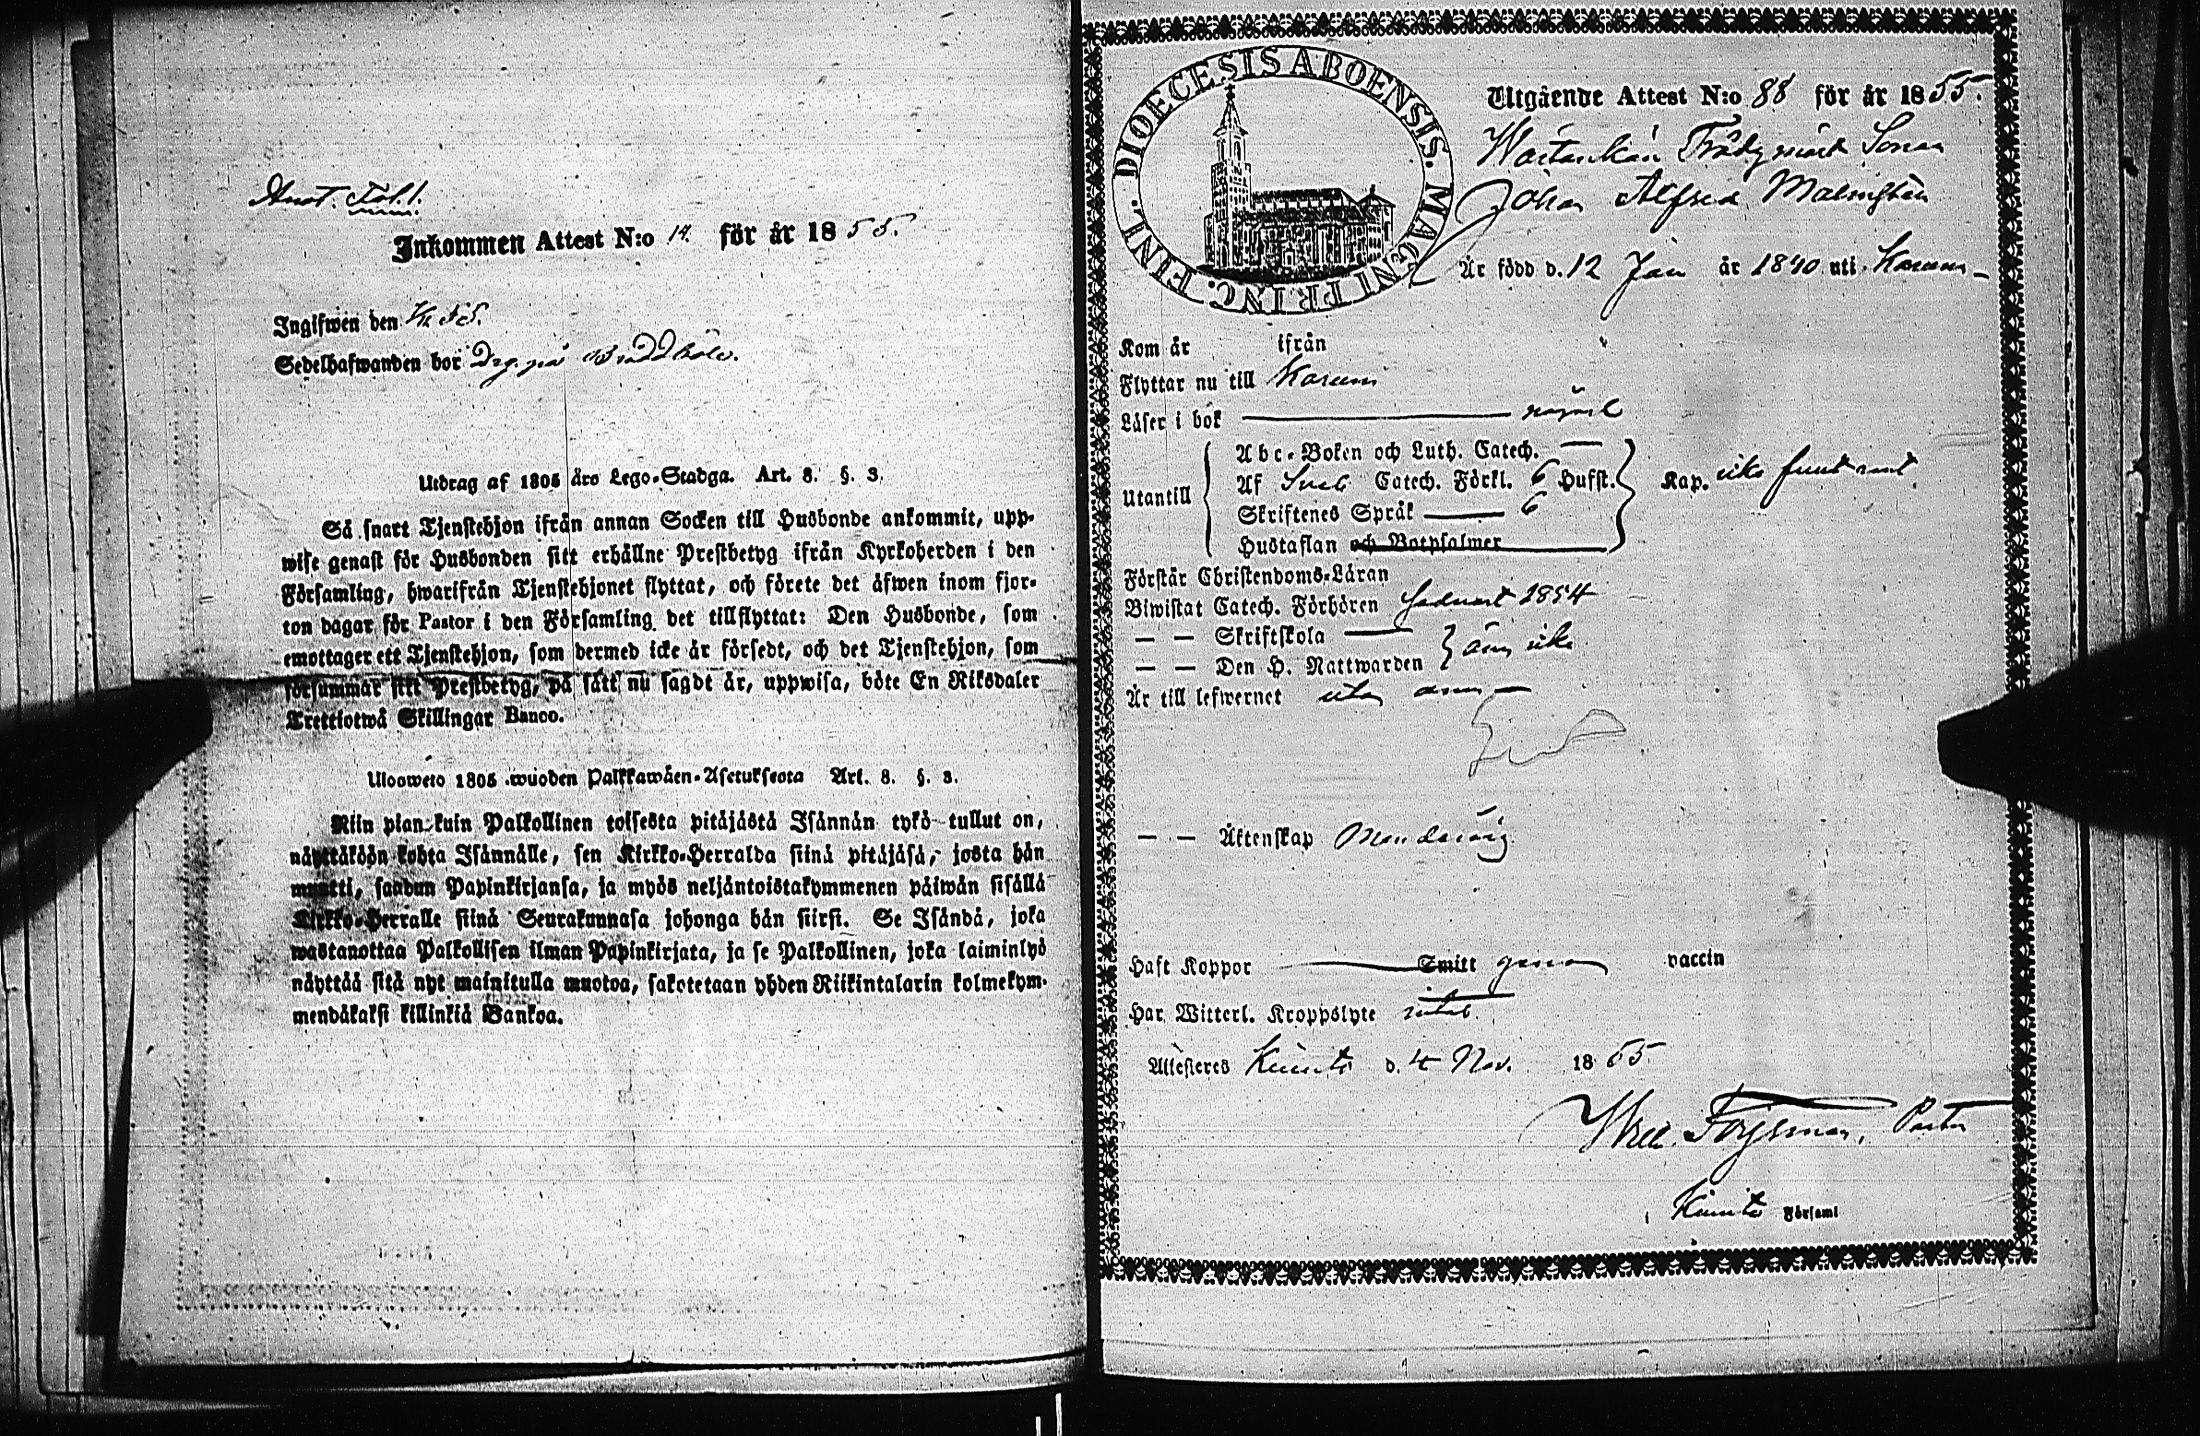 Anot. Fol. 1.
Inkommen Attest N:o 14. för år 1855.
Ingifwen den
Sedelhafwanden bor Drg. på
Utdrag af 1805 års Lego-Stadga. Art. 8. §. 3.
Så snart Tjenstehjon ifrån annan Socken till Husbonde ankommit, upp-
wise genast för Husbonden sitt erhållne Prestbetyg ifrån Kyrkoherden i den
Församling, hwarifrån Tjenstehjonet flyttat, och förete det äfwen inom fjor-
ton dagar för Pastor i den Församling det tillflyttat: Den Husbonde, som
emottager ett Tjenstehjon, som dermed icke är försedt, och det Tjenstehjon, som
försummar sitt Prestbetyg, på sätt nu sagdt är, uppwisa, böte En Riksdaler
Trettiotwå Skillingar Banco.
Uloswets 1805 wuoden Palkkawäen-Asetuksesta Art. 8. §. 3.
Niin pian kuin Palkollinen toisesta pitäjästä Isännän tykö tullut on,
näyttäköön kohta Isännälle, sen Kirkko-Herralda siinä pitäjäsä, josta hän
muutti, saadun Papinkirjansa, ja myös neljäntoistakymmenen päiwän sisällä
Kirkko-Herralle siinä Seurakunnasa johonga hän siirsi. Se Isändä, joka
wastanottaa Palkollisen ilman Papinkirjata, ja se Palkollinen, joka laiminlyö
näyttää sitä nyt mainitulla muotoa, sakotetaan yhden Riikintalarin kolmekym-
mendäkaksi killinkiä Bankoa.
DIOECESIS ABOENSIS. MAGNI PRINC. FINL.
Utgående Attest N:o 88 för år 1855.
Sonen
Johan Alfred Malmstén
Är född d. 12 Jan år 1840 uti Korum
Kom år ifrån
Flyttar nu till
Läser i bok
Utantill
Abc-Boken och Luth. Catech.
Af Sveb Catech. Förkl. 6 Hufst.
Skriftenes Språk 6
Hustaflan och Botpsalmer
Kap. icke
Förstår Christendoms-Läran
Biwistat Catech. Förhören sednast 1854
— — Skriftskola
— — Den H. Nattwarden
änu icke
Är till lefwernet utan anm
— — Äktenskap Minderårig
Haft Koppor Smitt genom vaccin
Har Witterl. Kroppslyte intet
Attesteras Kimito d. 4 Nov. 1855
Forssman, Pastor
i Kimito Församl